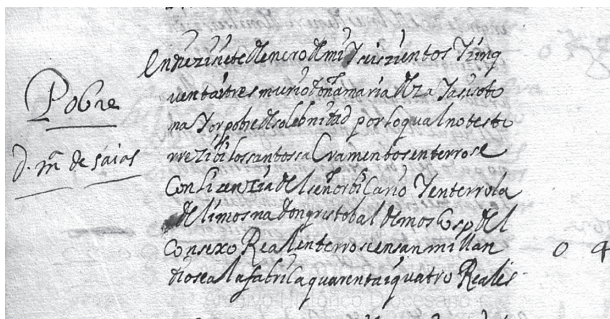 Pobre
d. mª de saias
en diez i siete de enero de mil y seiszientos y zinq
uenta i tres murio doña maria de za
por pobre de solebnidad por lo qual no testo
rrezibio los santos sacramentos enterrose
con lizenzia del señor bicario y enterrola
de limosna don gristobal de moscoso del
consexo Real enterrose en san millan
diose a la fabrica quarenta i quatro Reales
0 4